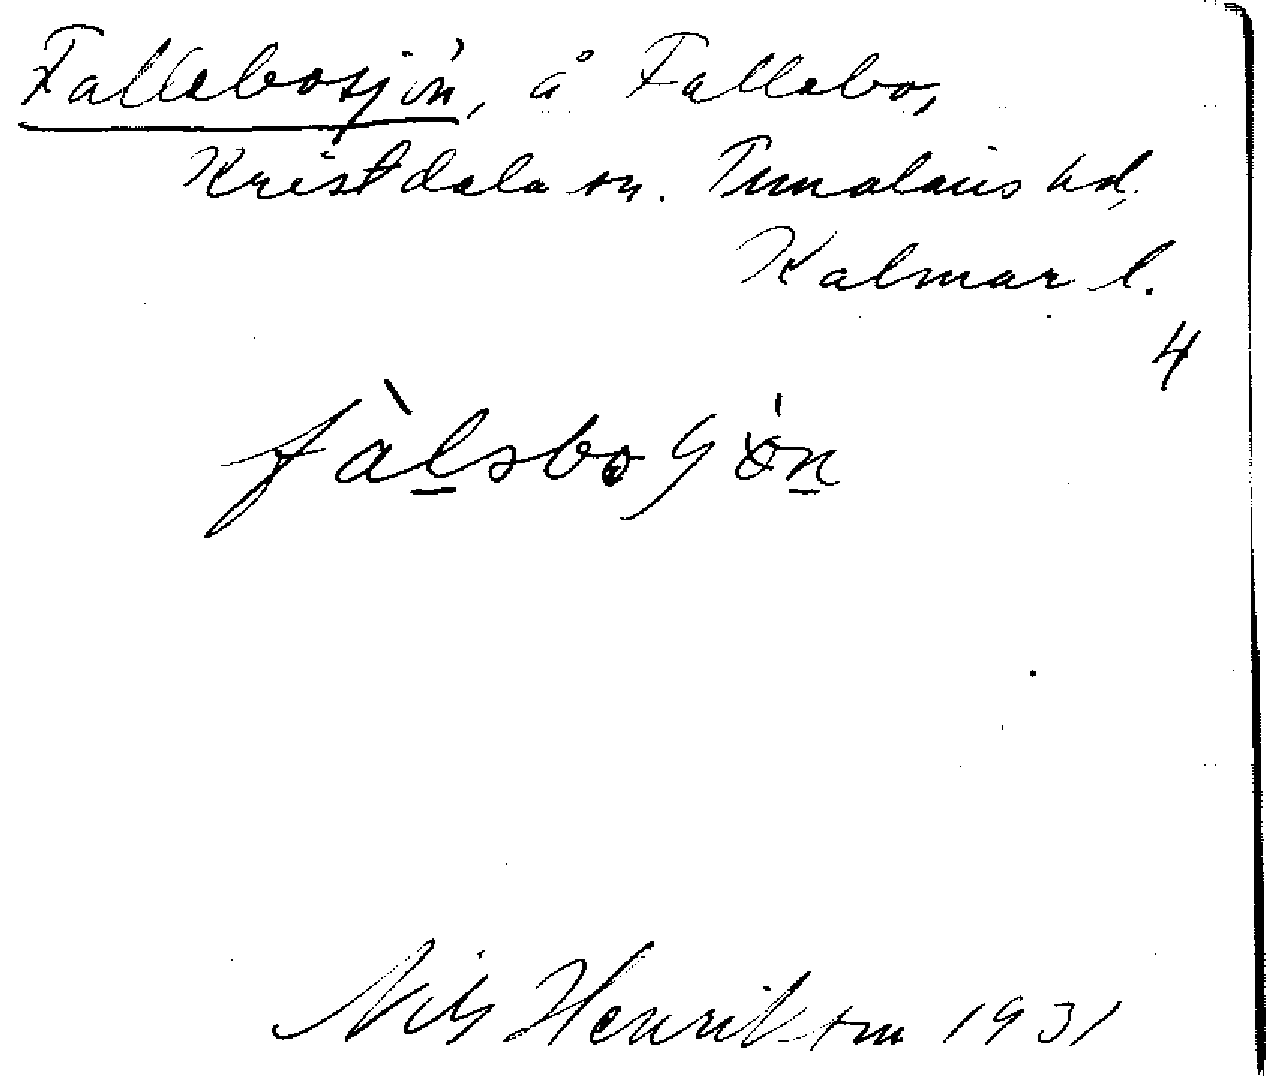 Fallebosjön, å Fallebo,
Kristdala sn. Tunaläns hd,
Kalmar l.
4
fàlsbo ʃ ö́n
Nils Henrikson 1931